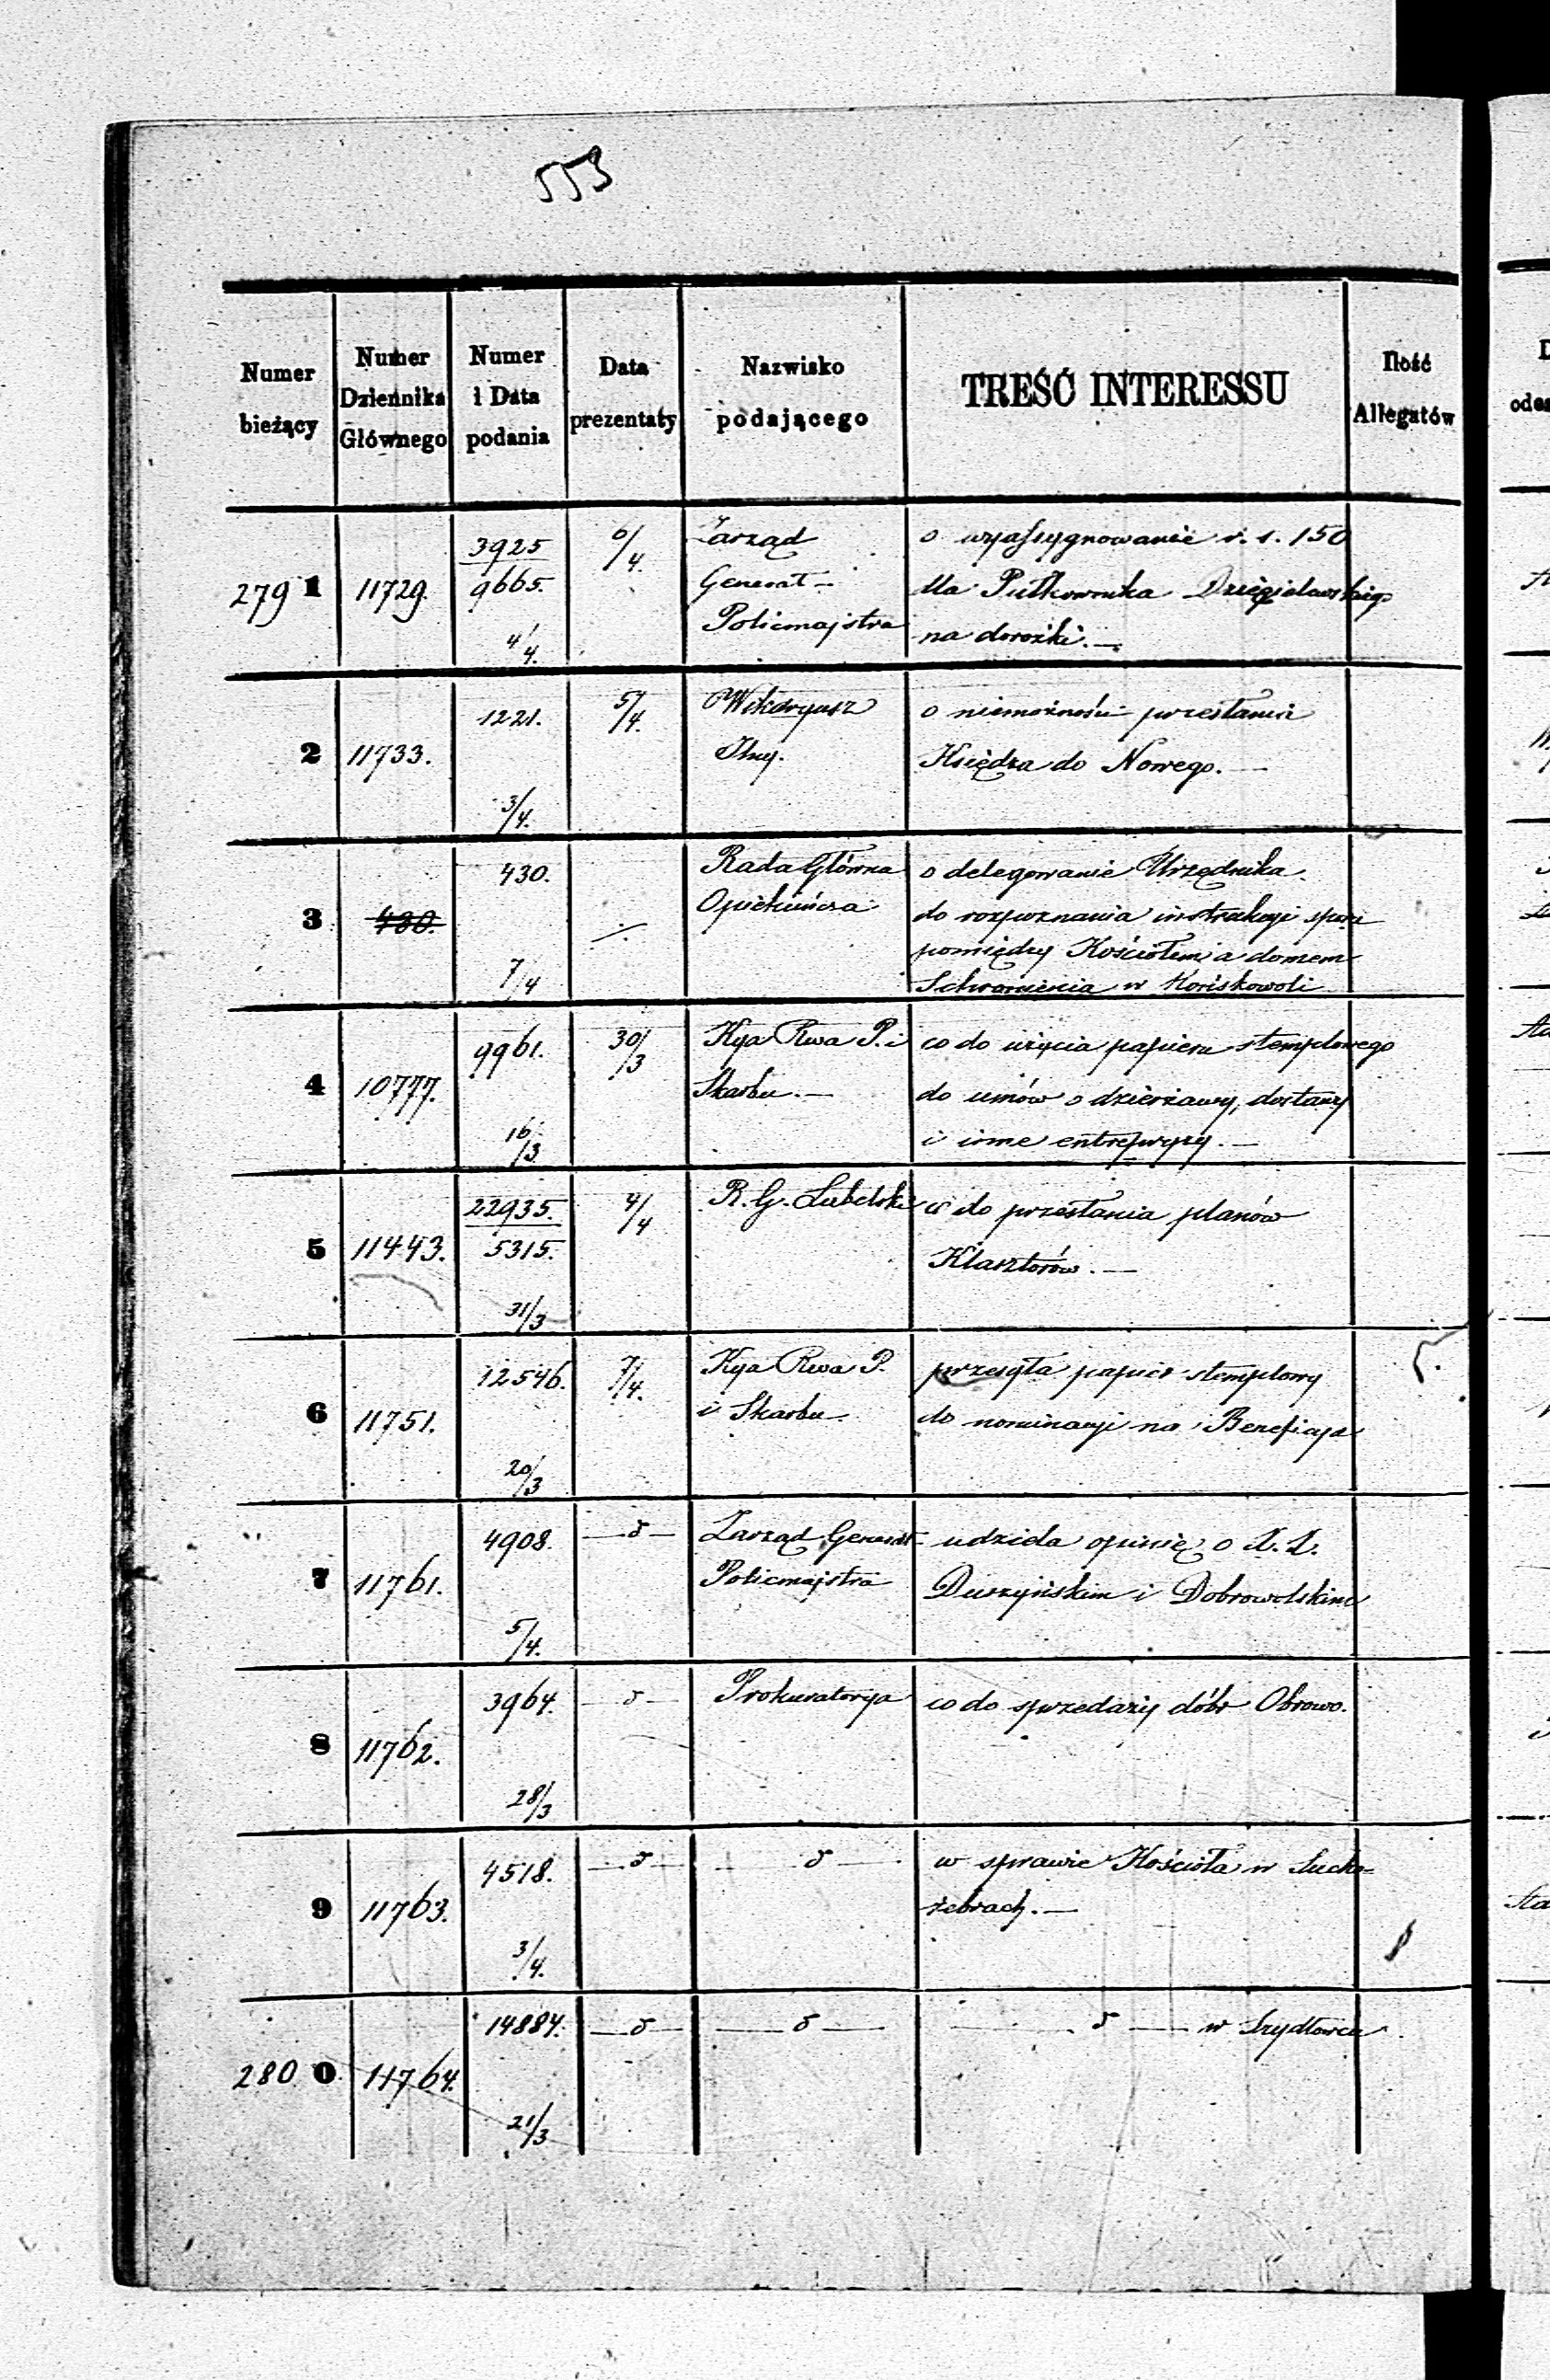 553
Numer bieżący
Numer Dziennika Głównego
Numer i Data podania
Data prezentaty
Nazwisko podającego
TREŚĆ INTERESSU
Ilość Allegatów
279 1 11729. 3925 6/4 Zarząd o wyassygnowanie r. s. 150
9665. Generał- dla Pułkownika
4/4. Policmajstra na dorożki.—
2 11733. 1221. 5/4. Wikaryusz o niemożności przesłania
Księdza do Nowego.—
3/4.
3 430. 430. Rada Główna o delegowanie Urzędnika
Opiekuńcza do rozpoznania sporu
pomiędzy Kościołem a domem
7/4 Schronienia w Końskowoli
4 10777. 9961. 30/3 Kya Rwa P. i co do użycia papieru stemplowego
Skarbu.— do umów o dzierżawy, dostawy
16/3 i inne entrepryzy.—
5 11443. 22935. 4/4 R. G. Lubelski co do przesłania planów
5315. Klasztorów.—
31/3
6 11751. 12546. 7/4. Kya Rwa P. przesyła papier stemplowy
i Skarbu. do nominacyi na Beneficya
20/3
7 11761. 4908. —d— Zarząd Generał- udziela opinię o X. X.
Policmajstra Duszyńskim i Dobrowolskim
5/4.
8 11762. 3964. —d— Prokuratorya co do sprzedaży dóbr Obrowo.
28/3
9 11763. 4518. —d— —d— w sprawie Kościoła w Sucho=
żebrach.—
3/4.
280. 0 11764. 14884. —d— —d— —d— w Szydłowcu
21/3